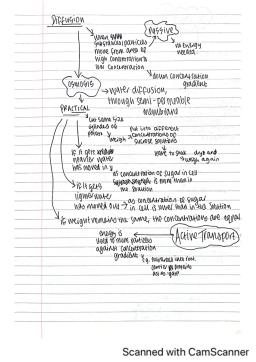 Diffusion
when
substances/particles
move from area of
high concentration to
low concentration
Passive
no energy
needed
down concentration
gradient
OSMOSIS
→ water diffusion,
through semi-permeable
membrane
PRACTICAL
same size
potato
weigh
put into different
concentrations of
sucrose solutions
leave to soak
weigh again
If it gets
heavier water
has moved in
as concentration of sugar in cell
is more than in
the solution
If it gets
lighter water
has moved out → as concentration of sugar
in cell is lower than in cell solution
If weight remains the same, the concentrations are equal
Active Transport
energy is
used to move particles
against concentration
gradient
e.g.
Scanned with CamScanner